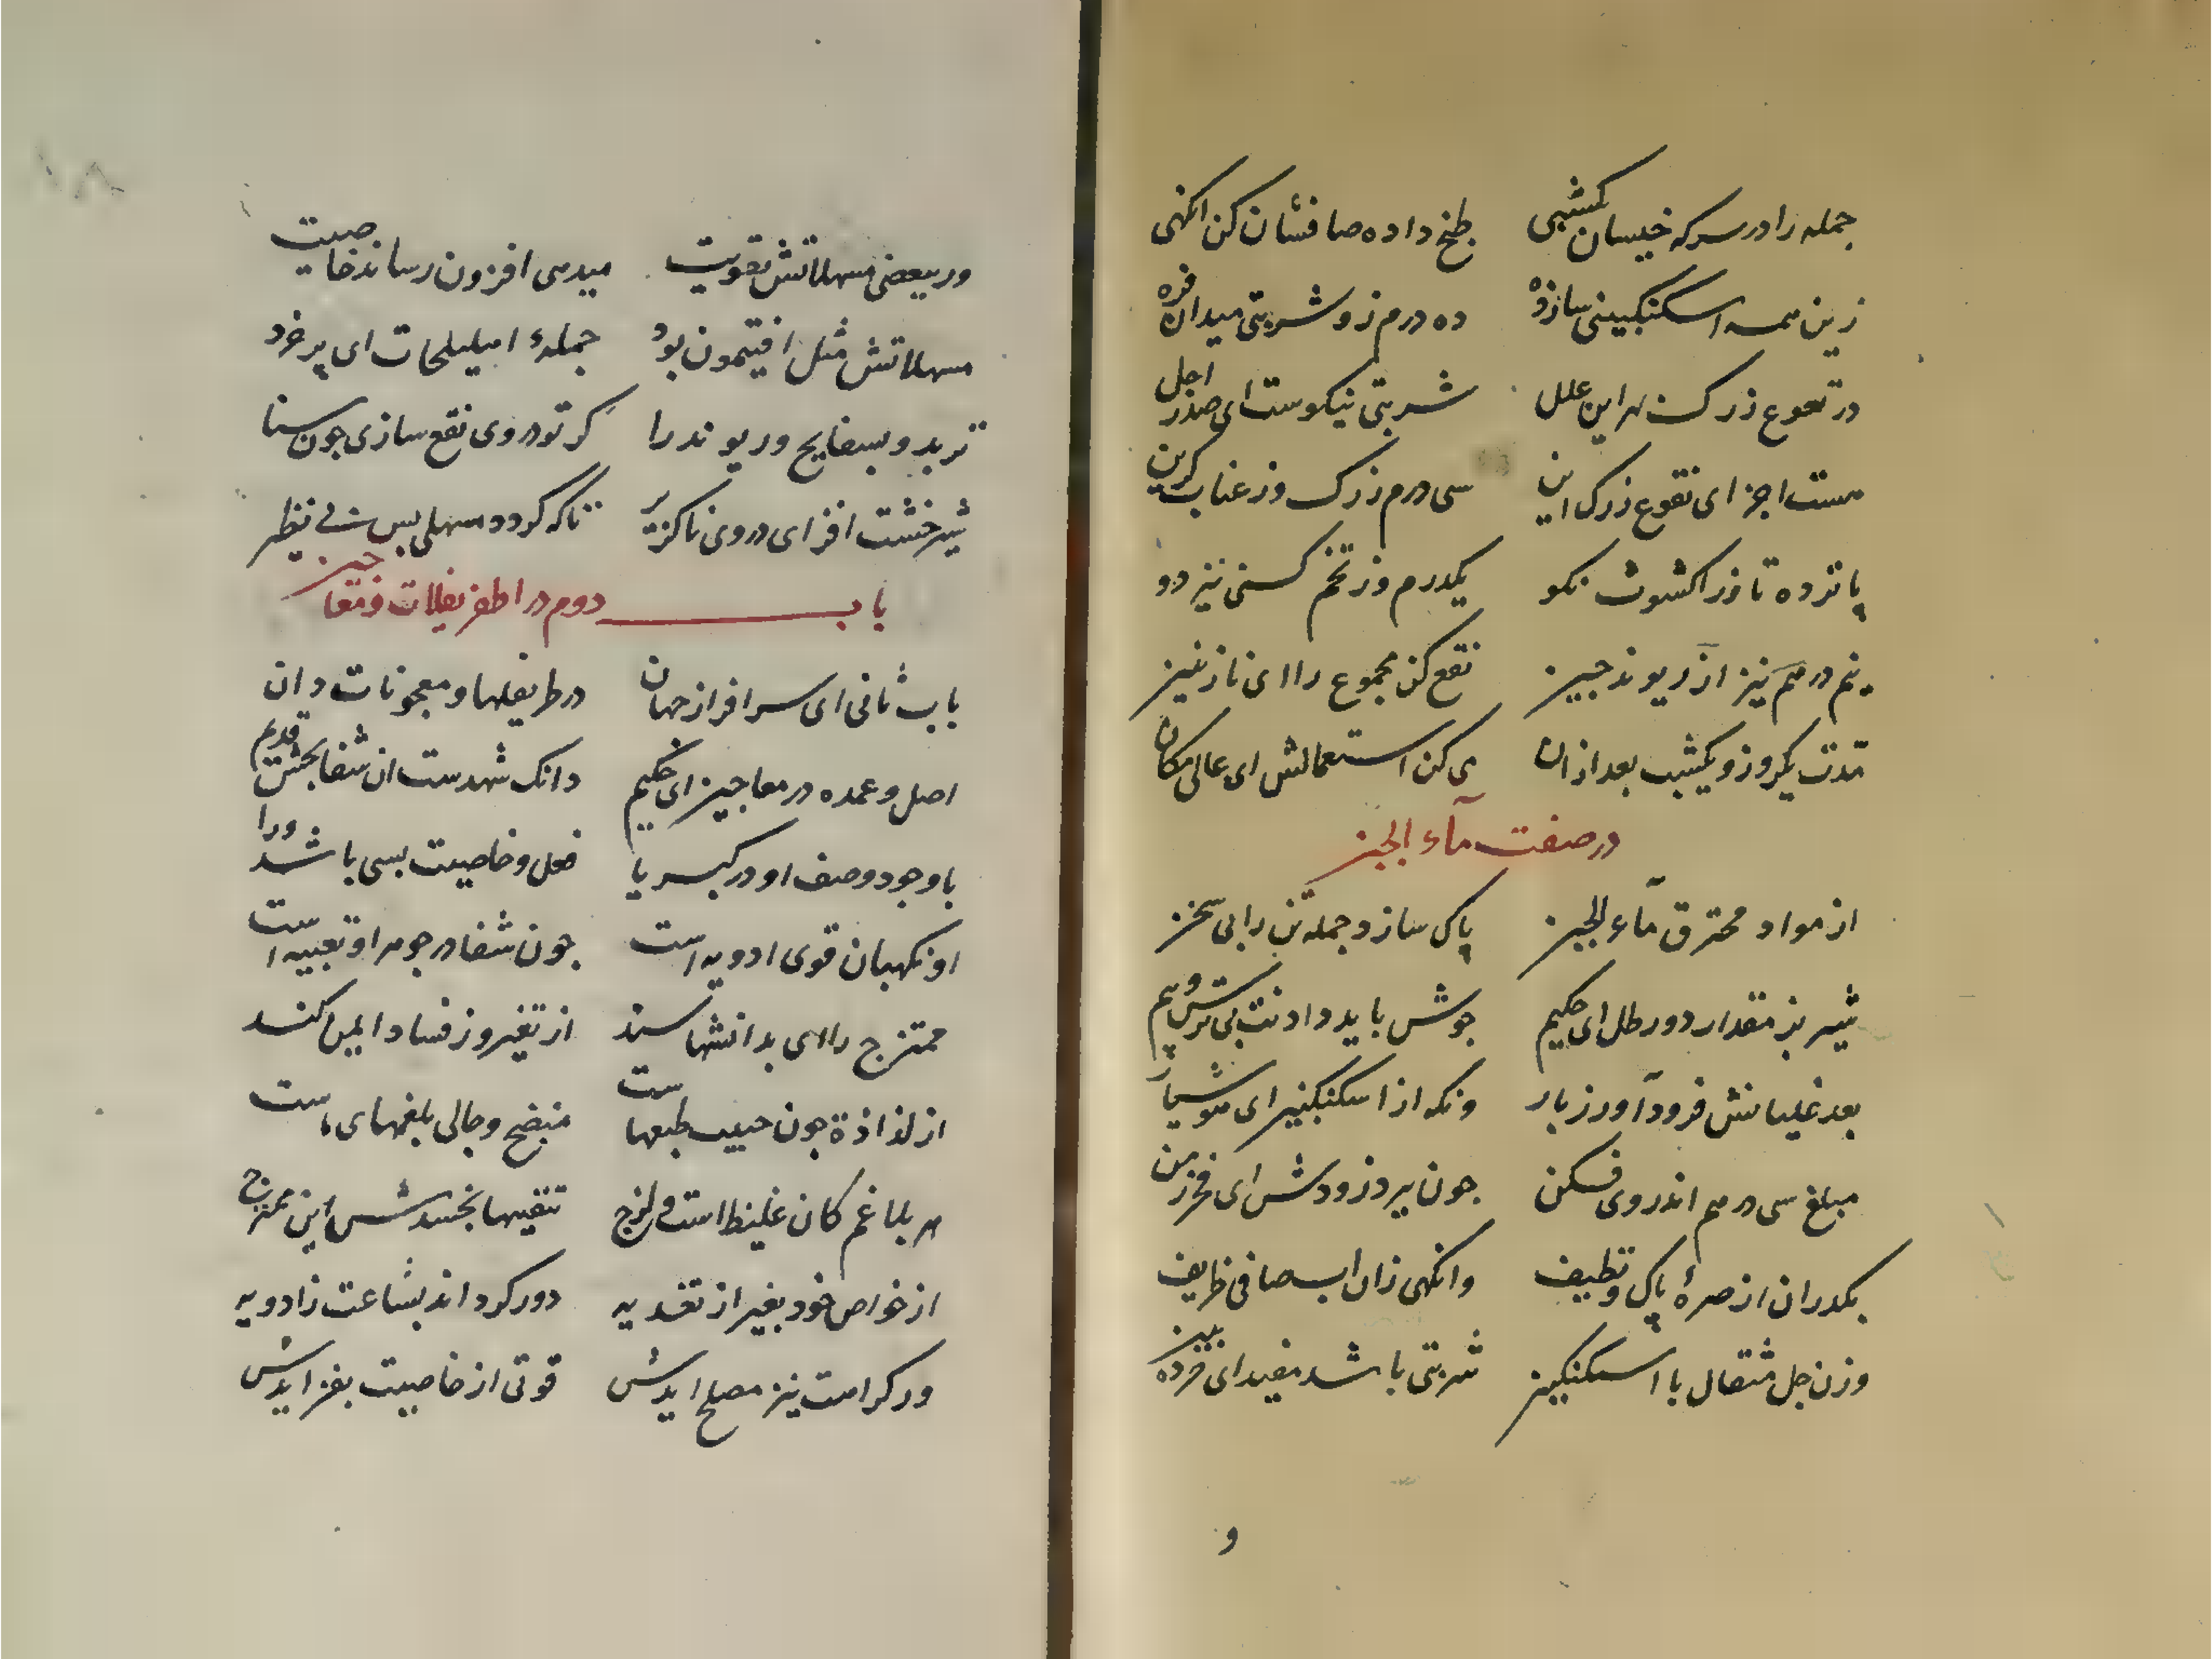 جمله را در سرکه خیسان یکشبی طبخ داده صاف شان کن انگهی
زین همه اسکنکبینی ساز ده ده درم زو شربتی میدان فره
در نقوع زرک بهر این علل شربتی نیکوست ای صدر اجل
هست اجزای نقوع زرک این سی درم زرک وز عناب کزین
پانزده تا وز اکشوث نکو یکدرم وز تخم کسنی نیز دو
نیم درهم نیز از ریوند چین نقع کن مجموع را ای نازنین
مدت یکروز و یکشب بعد ازان می کن استعمالش ای عالی مکان
در صفت مآء الجبن
از مواد محترق مآء الجبن پاک سازد جمله تن را بی سخن
شیر بز مقدار دو رطل ای حکیم جوش باید دادنت بی ترس و بیم
بعد غلیانش فرود آور ز بار ونکه از اسکنکبین ای هوشیار
مبلغ سی درهم اندر وی فکن چون ببرد زودش ای فخر زمن
بکدران از صرهٔ پاک و نظیف وانکهی زان اب صافی ظریف
وزن چل مثقال با اسکنکبین شربتی باشد مفید ای خرده بین
و
ور ببعضی مسهلاتش تقویت میدهی افزون رساند خاصیت
مسهلاتش مثل افتیمون بود جملهٔ اهلیلجات ای پر خرد
تربد و بسفایج و ریوند را کر تو در وی نقع سازی چون سنا
شیرخشت افزای در وی ناکزیر تا که کردد مسهلی بس بی نظیر
باب دوم در اطریفلات و معاجین
باب ثانی ای سرافراز جهان در طریفلها و معجونات دان
اصل و عمده در معاجین ای حکیم دانک شهدست ان شفابخش قدیم
با وجود وصف او در کبریا فعل و خاصیت بسی باشد ورا
او نکهبان قوی ادویه است چون شفا در جوهر او تعبیه است
ممتزج را ای بدانشها سند از تغیر وز فساد ایمن کند
از لذاذة چون حبیب طبعهاست منضج و جالی بلغمهای ماست
هر بلاغم کان غلیظ است و لزج تنقیها بخشدش این ممتزج
از خواص خود بغیر از تغدیه دور کرداند بشاعت زادویه
ور کرامت نیز مصلح ایدش قوتی از خاصیت بفزایدش